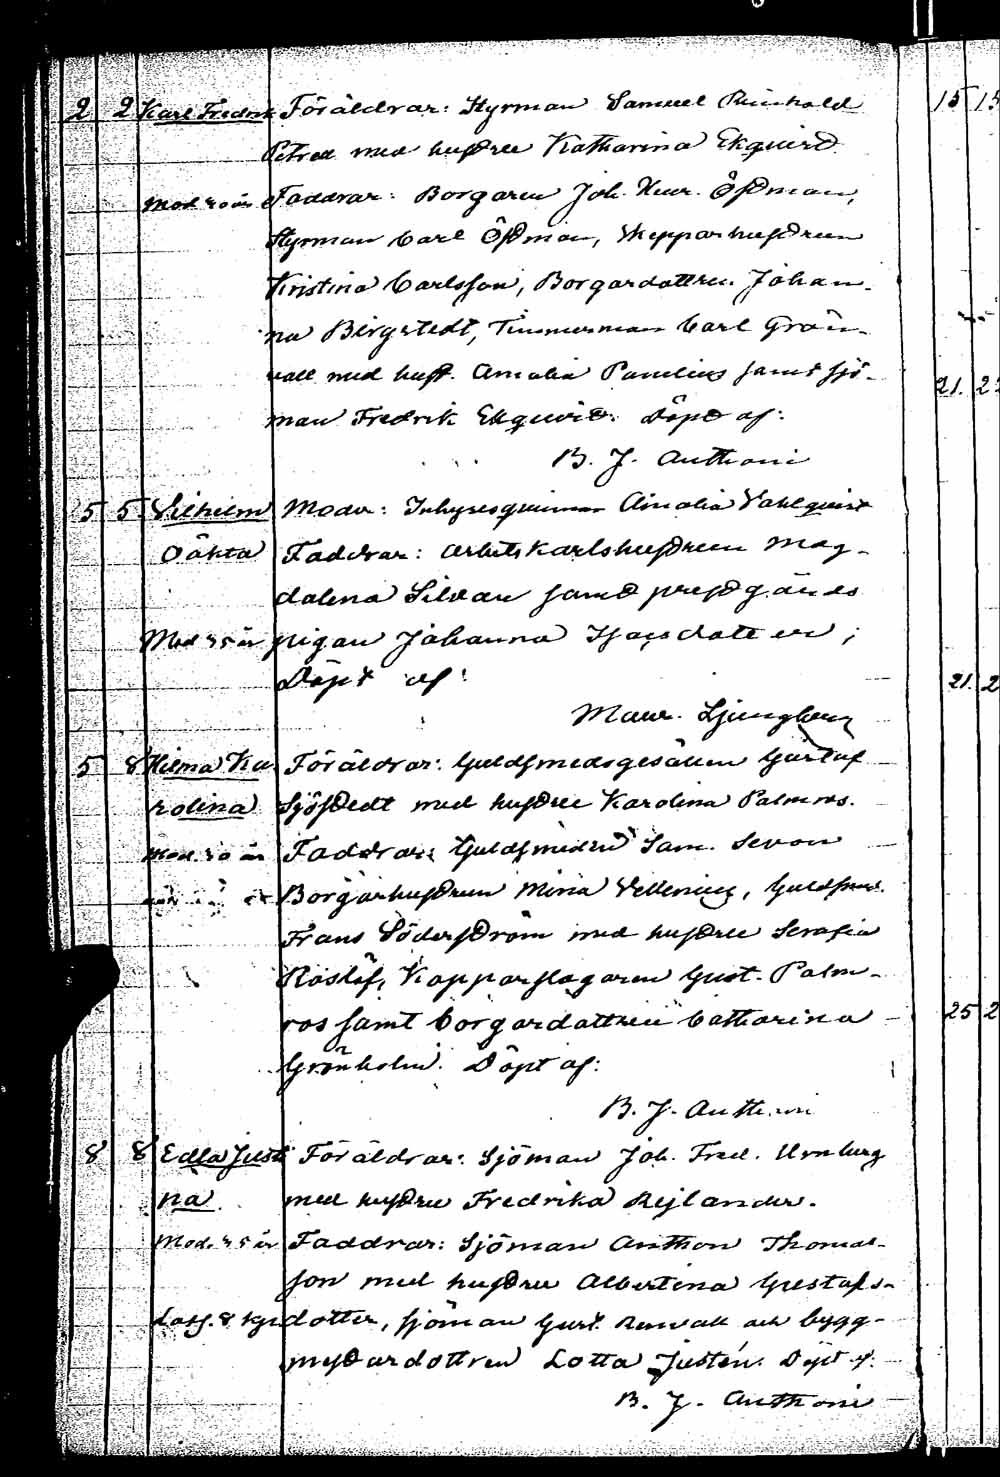 2 2 Karl Fredrik Föräldrar: Styrman Samuel Reinhold 15 15
Petrell med hustru Katharina Ekqvist
Mod. 30 år Faddrar: Borgaren Joh. Henr. Östman,
Styrman Carl Östman, Skepparhustrun
Kristina Carlsson, Borgardottren Johan-
na Bergstedt, Timmerman Carl Grön-
vall med hust. Amalia Paulius samt sjö- 21. 22
man Fredrik Ekqvist. Döpt af:
B. J. Anthoni
5 5 Vilhelm Moder: Inhyresqvinnan Amalia Vahlqvist
Oäkta Faddrar: Arbetskarlshustrun Mag-
dalena Silvan samt prestgårds
Mod 35 år pigan Johanna Isaksdotter;
Döpt af: 21. 2
Maur. Ljungberg
5 8 Hilma Ka- Föräldrar: Guldsmedsgesällen Gustaf
rolina Sjöstedt med hustru Karolina Palmros.
Mod. 30 år Faddrar: Guldsmeden Sam. Sevon
Borgarhustrun Mina Vellenius, Guldsmed.
Frans Söderström med hustru Serafia
Roslöf, Kopparslagaren Gust. Palm-
ros samt borgardottren Catharina 25 2
Grönholm. Döpt af:
B. J. Anthoni
8 8 Edla Justi Föräldrar: Sjöman Joh. Fred.
na med hustru Fredrika Rejlander.
Mod. 35 år Faddrar: Sjöman Anthon Thomas-
son med hustru Albertina Gustafs-
dotter, sjöman Gust. Renvall och bygg-
mästardottren Lotta Justén. Döpt af:
B. J. Anthoni